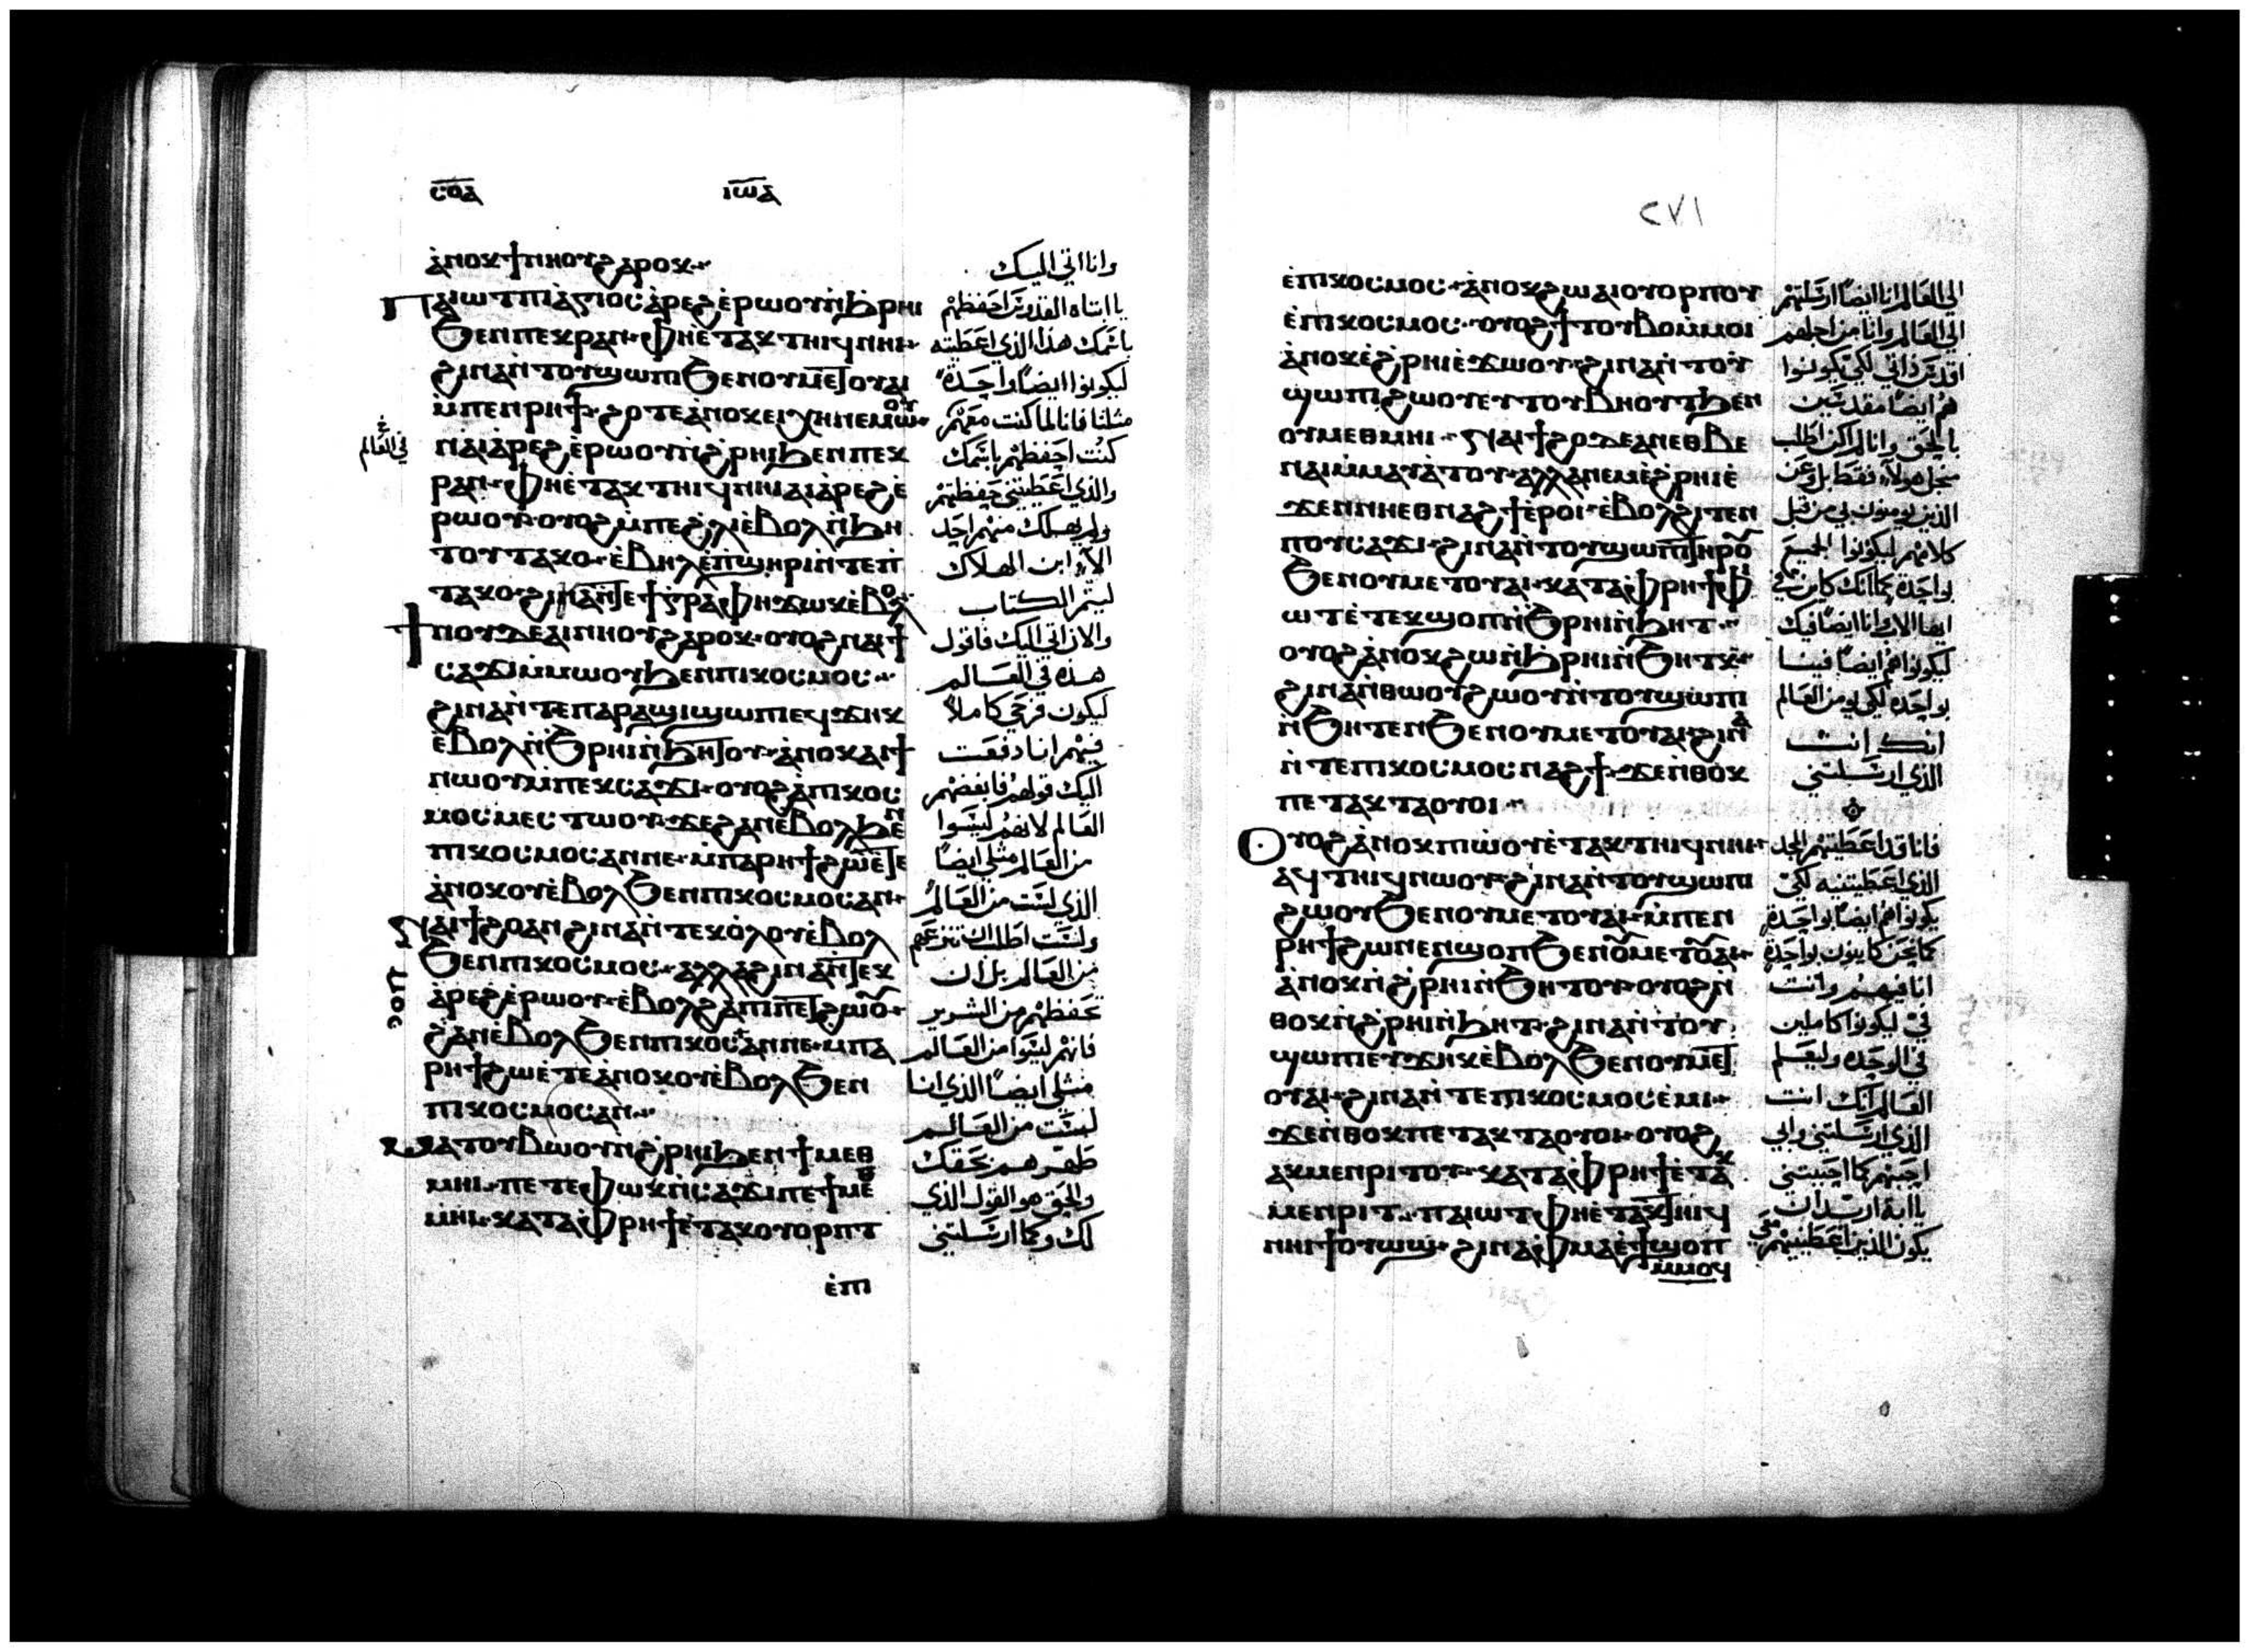 ⲥⲟⲁ
ⲓⲱⲁ
ⲁ̀ⲛⲟⲕϯⲛⲏⲟⲩϩⲁⲣⲟⲕ
ⲡⲁⲓⲱⲧⲡⲓⲁ̀ⲅⲓⲟⲥⲁ̀ⲣⲉϩⲉ̀ⲣⲱⲟⲩⲛ̀ϧⲣⲏⲓ
ϧⲉⲛⲡⲉⲕⲣⲁⲛ ⲫⲏⲉ̀ⲧⲁⲕⲧⲏⲓϥⲛⲏⲓ
ϩⲓⲛⲁⲛ̀ⲧⲟⲩϣⲱⲡⲓϧⲉⲛⲟⲩⲙⲉⲧⲟⲩⲁⲓ
ⲙ̀ⲡⲉⲛⲣⲏϯ ϩⲟⲧⲉⲁ̀ⲛⲟⲕⲉⲓⲭⲏⲛⲉⲙⲱⲟⲩ
ⲛⲁⲓⲁ̀ⲣⲉϩⲉ̀ⲣⲱⲟⲩⲛ̀ϩ̀ⲣⲏⲓϧⲉⲛⲡⲉⲕ
ⲣⲁⲛ ⲫⲏⲉ̀ⲧⲁⲕⲧⲏⲓϥⲛⲏⲓⲁⲓⲁ̀ⲣⲉϩⲉ̀
ⲣⲱⲟⲩ ⲟⲩⲟϩⲙ̀ⲡⲉϩ̀ⲗⲓⲉ̀ⲃⲟⲗⲛ̀ϧⲏ
ⲧⲟⲩⲧⲁⲕⲟ ⲉ̀ⲃⲏⲗⲉ̀ⲡ̀ϣⲏⲣⲓⲛ̀ⲧⲉⲡ̀
ⲧⲁⲕⲟ ϩⲓⲛⲁⲛ̀ⲧⲉϯⲅ̀ⲣⲁⲫⲏϫⲱⲕⲉ̀ⲃⲟⲗ
ϯⲛⲟⲩⲇⲉⲁⲓⲛⲏⲟⲩϩⲁⲣⲟⲕ ⲟⲩⲟϩⲛⲁⲓϯ
ⲥⲁϫⲓⲙ̀ⲙⲱⲟⲩϧⲉⲛⲡⲓⲕⲟⲥⲙⲟⲥ
ϩⲓⲛⲁⲛ̀ⲧⲉⲡⲁⲣⲁϣⲓϣⲱⲡⲓⲉϥϫⲏⲕ
ⲉ̀ⲃⲟⲗⲛ̀ϧⲣⲏⲓⲛ̀ϧⲏⲧⲟⲩ ⲁ̀ⲛⲟⲕⲁⲓϯ
ⲛⲱⲟⲩⲙ̀ⲡⲉⲕⲥⲁϫⲓ ⲟⲩⲟϩⲁ̀ⲡⲓⲕⲟⲥ
ⲙⲟⲥⲙⲉⲥⲧⲱⲟⲩ ϫⲉϩⲁⲛⲉ̀ⲃⲟⲗϧⲉⲛ
ⲡⲓⲕⲟⲥⲙⲟⲥⲁⲛⲛⲉ ⲙ̀ⲡⲁⲣⲏϯϩⲱⲉ̀ⲧⲉ
ⲁ̀ⲛⲟⲕⲟⲩⲉ̀ⲃⲟⲗϧⲉⲛⲡⲓⲕⲟⲥⲙⲟⲥⲁⲛ
ⲛⲁⲓϯϩⲟⲁⲛϩⲓⲛⲁⲛ̀ⲧⲉⲕⲟ̀ⲗⲟⲩⲉ̀ⲃⲟⲗ
ϧⲉⲛⲡⲓⲕⲟⲥⲙⲟⲥ ⲁⲗⲗⲁϩⲓⲛⲁⲛ̀ⲧⲉⲕ
ⲁ̀ⲣⲉϩⲉ̀ⲣⲱⲟⲩ ⲉ̀ⲃⲟⲗϩⲁⲡⲓⲡⲉⲧϩⲱⲟⲩ
ϩⲁⲛⲉ̀ⲃⲟⲗϧⲉⲛⲡⲓⲕⲟⲥⲁⲛⲛⲉ ⲙ̀ⲡⲁ
ⲣⲏϯϩⲱⲉ̀ⲧⲉⲁ̀ⲛⲟⲕⲟⲩⲉ̀ⲃⲟⲗϧⲉⲛ
ⲡⲓⲕⲟⲥⲙⲟⲥⲁⲛ
ⲙⲁⲧⲟⲩⲃⲱⲟⲩⲛ̀ϩ̀ⲣⲏⲓϧⲉⲛϯⲙⲉⲑ
ⲙⲏⲓ ⲡⲉⲧⲉⲫⲱⲕⲛ̀ⲥⲁϫⲓⲡⲉϯⲙⲉⲑ
ⲙⲏⲓ ⲕⲁⲧⲁⲫ̀ⲣⲏϯⲉ̀ⲧⲁⲕⲟⲩⲟⲣⲡⲧ
ⲉ̀ⲡⲓ
وانا اتي اليك
يا ابتاه القدوس احفظهم
باسمك هذا الذي اعطيته
ليكونوا ايضا واحدة
مثلنا فانا لما كنت معهم
في العالم
كنت احفظهم باسمك
والذي اعطيتني حفظتهم
ولم يهلك منهم احد
الا ابن الهلاك
ليتم الكتاب
والان اتي اليك فاقول
هذه في العالم
ليكون فرحي كاملا
فيهم انا دفعت
اليك قولهم فابغضهم
العالم لانهم ليسوا
من العالم مثلي ايضا
الذي لست من العالم
ولست اطلب ان تنزعهم
من العالم بل ان
تحفظهم من الشرير
فانهم ليسوا من العالم
مثلي ايضا الذي انا
لست من العالم
طهرهم بحقك
والحق هو القول الذي
لك وكما ارسلتني
٢٧١
ⲉ̀ⲡⲓⲕⲟⲥⲙⲟⲥ ⲁ̀ⲛⲟⲕϩⲱⲁⲓⲟⲩⲟⲣⲡⲟⲩ
ⲉ̀ⲡⲓⲕⲟⲥⲙⲟⲥ ⲟⲩⲟϩϯⲧⲟⲩⲃⲟⲙ̀ⲙⲟⲓ
ⲁ̀ⲛⲟⲕⲉ̀ϩ̀ⲣⲏⲓⲉ̀ϫⲱⲟⲩ ϩⲓⲛⲁⲛ̀ⲧⲟⲩ
ϣⲱⲡⲓϩⲱⲟⲩⲉⲩⲧⲟⲩⲃⲏⲟⲩⲧϧⲉⲛ
ⲟⲩⲙⲉⲑⲙⲏⲓ ⲛⲁⲓϯϩⲟⲇⲉⲁⲛⲉⲑⲃⲉ
ⲛⲁⲓⲙ̀ⲙⲁⲩⲁ̀ⲧⲟⲩ ⲁⲗⲗⲁⲛⲉⲙⲉ̀ϩ̀ⲣⲏⲓⲉ̀
ϫⲉⲛⲛⲏⲉⲑⲛⲁϩϯⲉ̀ⲣⲟⲓ ⲉ̀ⲃⲟⲗϩⲓⲧⲉⲛ
ⲡⲟⲩⲥⲁϫⲓ ϩⲓⲛⲁⲛ̀ⲧⲟⲩϣⲱⲡⲓⲧⲏⲣⲟⲩ
ϧⲉⲛⲟⲩⲙⲉⲧⲟⲩⲁⲓ ⲕⲁⲧⲁⲫ̀ⲣⲏϯⲫ
ⲓⲱⲧⲉ̀ⲧⲉⲕϣⲟⲡⲛ̀ϧⲣⲏⲓⲛ̀ϧⲏⲧ
ⲟⲩⲟϩⲁ̀ⲛⲟⲕϩⲱⲛ̀ϧⲣⲏⲓⲛ̀ϧⲏⲧⲕ
ϩⲓⲛⲁⲛ̀ⲑⲱⲟⲩϩⲱⲟⲩⲛ̀ⲧⲟⲩϣⲱⲡⲓ
ⲛ̀ϧⲏⲧⲉⲛϧⲉⲛⲟⲩⲙⲉⲧⲟⲩⲁⲓϩⲓⲛⲁ
ⲛ̀ⲧⲉⲡⲓⲕⲟⲥⲙⲟⲥⲛⲁϩϯ ϫⲉⲛ̀ⲑⲟⲕ
ⲡⲉⲧⲁⲕⲧⲁⲟⲩⲟⲓ
ⲟⲩⲟϩⲁ̀ⲛⲟⲕⲡⲓⲱ̀ⲟⲩⲉ̀ⲧⲁⲕⲧⲏⲓϥⲛⲏⲓ
ⲁⲓⲧⲏⲓϥⲛⲱⲟⲩ ϩⲓⲛⲁⲛ̀ⲧⲟⲩϣⲱⲡⲓ
ϩⲱⲟⲩϧⲉⲛⲟⲩⲙⲉⲧⲟⲩⲁⲓ ⲙ̀ⲡⲉⲛ
ⲣⲏϯϩⲱⲛⲉⲛϣⲟⲡϧⲉⲛⲟⲩⲙⲉⲧⲟⲩⲁⲓ
ⲁ̀ⲛⲟⲕⲛ̀ϩ̀ⲣⲏⲓⲛ̀ϧⲏⲧⲟⲩ ⲟⲩⲟϩⲛ̀
ⲑⲟⲕⲛ̀ϩ̀ⲣⲏⲓⲛ̀ϧⲏⲧ ϩⲓⲛⲁⲛ̀ⲧⲟⲩ
ϣⲱⲡⲓⲉⲩϫⲏⲕⲉ̀ⲃⲟⲗϧⲉⲛⲟⲩⲙⲉⲧ
ⲟⲩⲁⲓ ϩⲓⲛⲁⲛ̀ⲧⲉⲡⲓⲕⲟⲥⲙⲟⲥⲉ̀ⲙⲓ
ϫⲉⲛ̀ⲑⲟⲕⲡⲉⲧⲁⲕⲧⲁⲟⲩⲟⲓ ⲟⲩⲟϩ
ⲁⲕⲙⲉⲛⲣⲓⲧⲟⲩ ⲕⲁⲧⲁⲫ̀ⲣⲏϯⲉ̀ⲧⲁⲕ
ⲙⲉⲛⲣⲓⲧ ⲡⲁⲓⲱⲧⲫⲏⲉ̀ⲧⲁⲕⲧⲏⲓϥ
ⲛⲏⲓϯⲟⲩⲱϣ ϩⲓⲛⲁⲫ̀ⲙⲁⲉ̀ϯϣⲟⲡ
ⲙ̀ⲙⲟϥ
الى العالم انا ايضا ارسلتهم
الى العالم وانا من اجلهم
اقدس ذاتي لكي يكونوا
هم ايضا مقدسين
بالحق وانا لم اكن اطلب
من اجل هولاء فقط بل وعن
الذين يومنون بي من قبل
كلامهم ليكونوا الجميع
بواحدة كما انك كاين في
ايها الاب وانا ايضا فيك
ليكونوا هم ايضا فينا
بواحدة لكي يومن العالم
انك انت
الذي ارسلتني
فانا قد اعطيتهم المجد
الذي اعطيتنيه لكي
يكونوا هم ايضا بواحدة
كما نحن كاينون بواحدة
انا فيهم وانت
في ليكونوا كاملين
في الوحدة وليعلم
العالم انك انت
الذي ارسلتني واني
احببتهم كما احببتني
يا ابة اريد ان
يكون الذين اعطيتنيهم معي